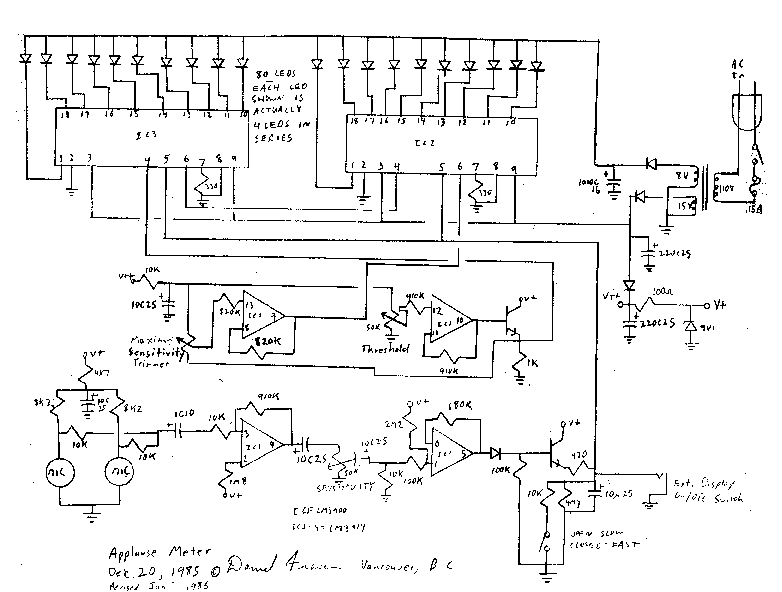 80 LEDS
EACH LED
SHOWN IS
ACTUALLY
4 LEDS IN
SERIES
AC
18 17 16 15 14 13 12 11 10
IC3
1 2 3 4 5 6 7 8 9
330
18 17 16 15 14 13 12 11 10
IC2
1 2 3 4 5 6 7 8 9
330
1000C
16
8V
15V
110V
.15A
220C25
100Ω
V++
V+
220C25
9V1
V++
10K
10C25
820K
13
8
9
IC1
820K
Maximum
Sensitivity
Trimmer
50K
Threshold
910K
12
11
10
IC1
910K
V+
1K
V+
4K7
8K2
8K2
10C
25
10K
10K
MIC
MIC
1C10
10K
910K
3
2
4
IC1
1M8
V+
10C25
50K
SENSITIVITY
10C25
10K
120K
V+
2M2
680K
6
1
5
IC1
100K
V+
470
10K
4M7
10µ25
OPEN SLOW
CLOSED FAST
Ext. Display
On/Off Switch
IC1 LM3900
Applause Meter
Dec. 20, 1985 ©
Vancouver, B C
Revised Jan 1986